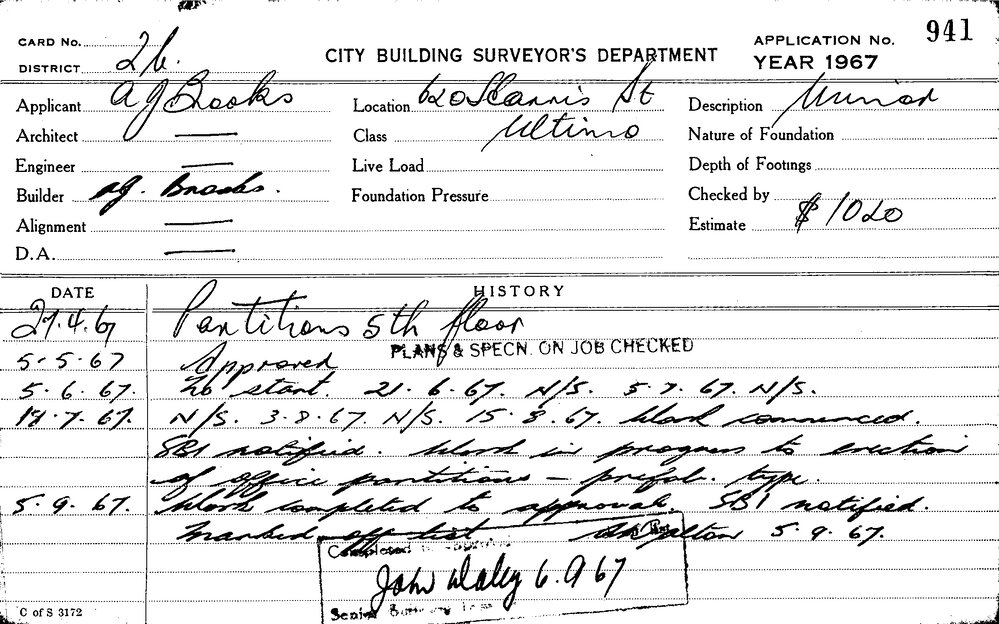 CARD No.
CITY BUILDING SURVEYOR'S DEPARTMENT
APPLICATION No. 941
DISTRICT 2b.
YEAR 1967
Applicant A G Brooks
Location Harris St
Description Minor
Architect —
Class Ultimo
Nature of Foundation
Engineer —
Live Load
Depth of Footings
Builder A.G. Brooks.
Foundation Pressure
Checked by
Alignment —
Estimate $1020
D.A. —
DATE HISTORY
27.4.67 Partitions 5th floor
5-5-67 Approved PLANS & SPECN. ON JOB CHECKED
5.6.67. To start. 21.6.67. N/S. 5.7.67. N/S.
18.7.67. N/S. 3.8.67. N/S. 15.8.67. Work commenced.
SBI notified. Work in progress to erection
of office partitions – prefab. type.
5.9.67. Work completed to approval. SBI notified.
Marked off list 5.9.67.
Completed
John Daley 6.9.67
Senior
C of S 3172